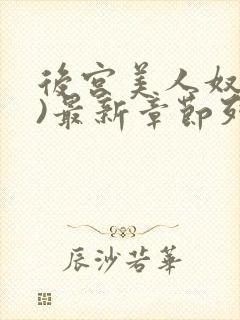 後宮美人奴
)最新章節列
辰沙若華